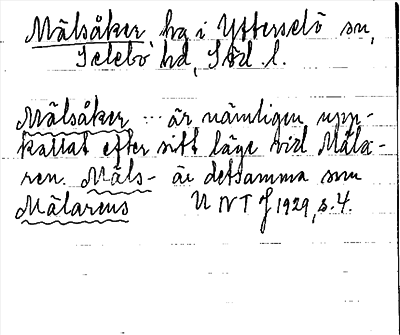 Mälsåker, hg i Ytterselö sn,
Selebo hd, Söd. l.
Mälsåker ... är nämligen upp-
kallat efter sitt läge vid Mäla-
ren. Mäls- är detsamma som
Mälarens U NT f 1929, s. 4.